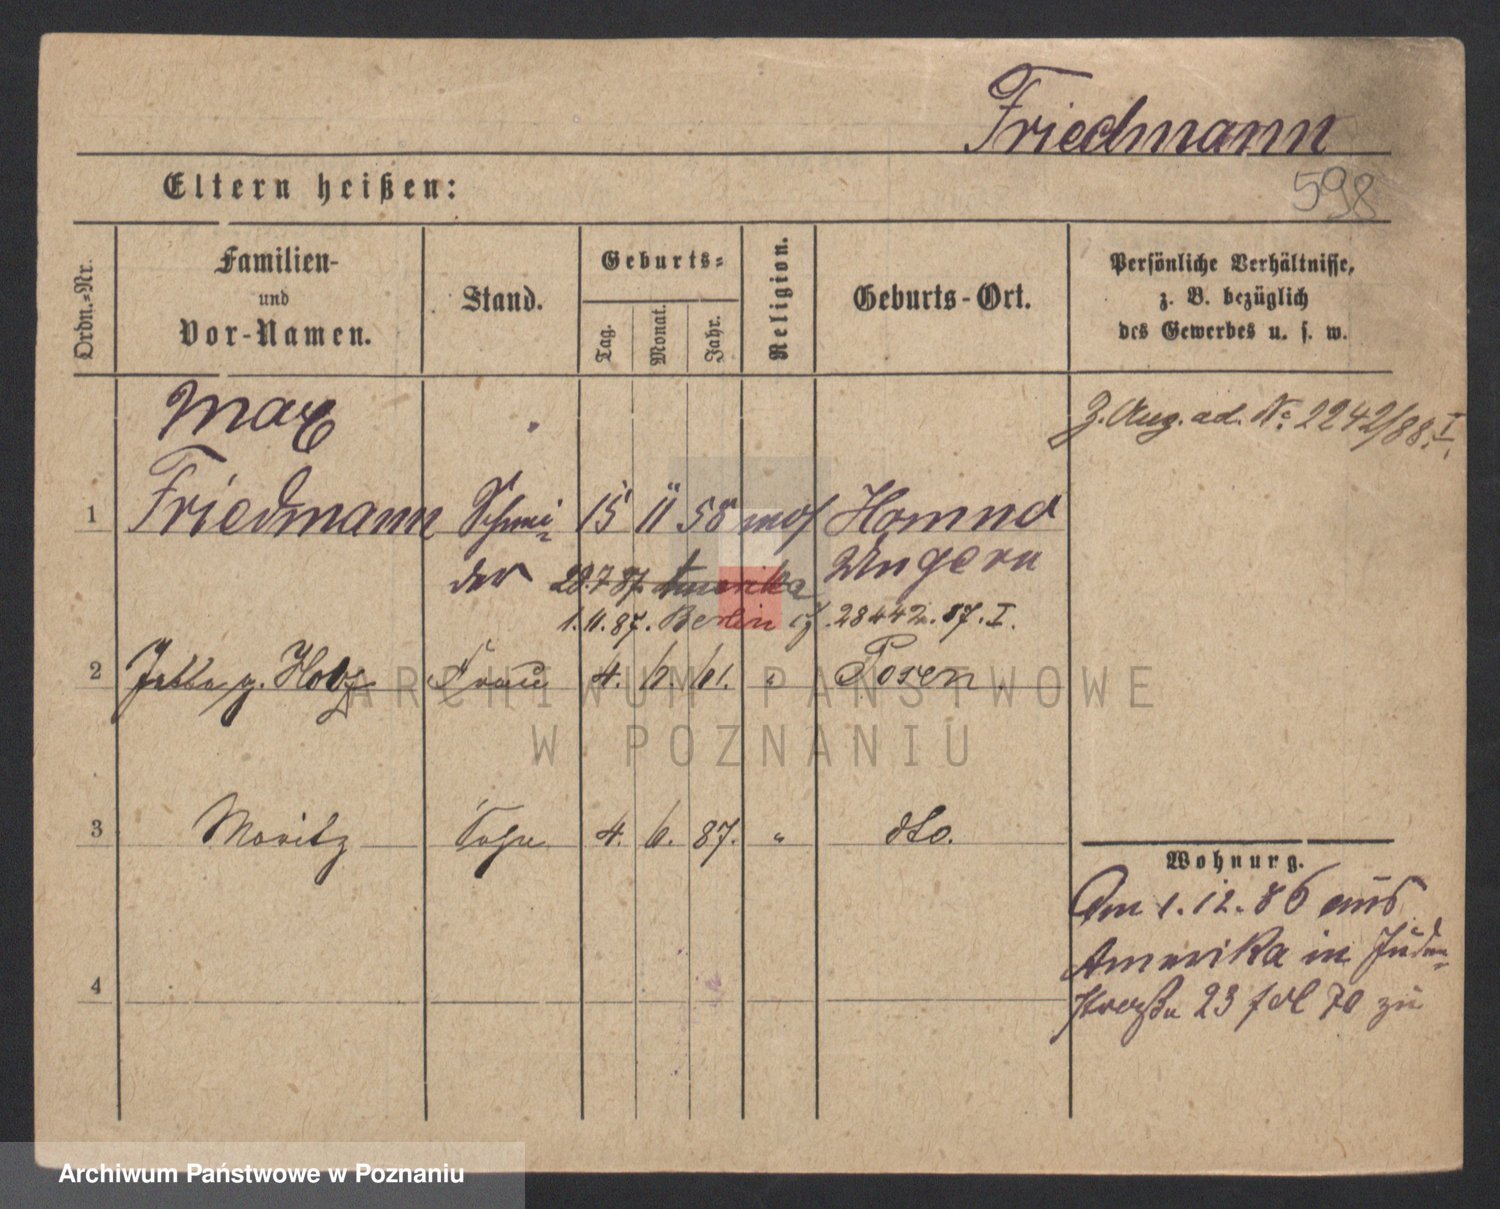 Friedmann
598
Eltern heißen:
Ordn.=Nr.
Familien-
und
Vor-Namen.
Stand.
Geburts=
Tag.
Monat.
Jahr.
Religion.
Geburts-Ort.
Persönliche Verhältnisse,
z. B. bezüglich
des Gewerbes u. s. w.
Z. Aug. ad. No. 2242/88. I.
Max
1 Friedmann Schnei- 15 11 58 mos Homnnd
der Ungern
20.7.87. Amerika
1.11.87. Berlin 28442.87.I.
2 g. Holz Frau 4. 6. 61. " Posen
3 Moritz Sohn 4. 6. 87. " dto.
Wohnung.
Am 1.12.86 aus
Amerika in Juden-
straße 23 fol 70 zu
4
ARCHIWUM PAŃSTWOWE
W POZNANIU
Archiwum Państwowe w Poznaniu